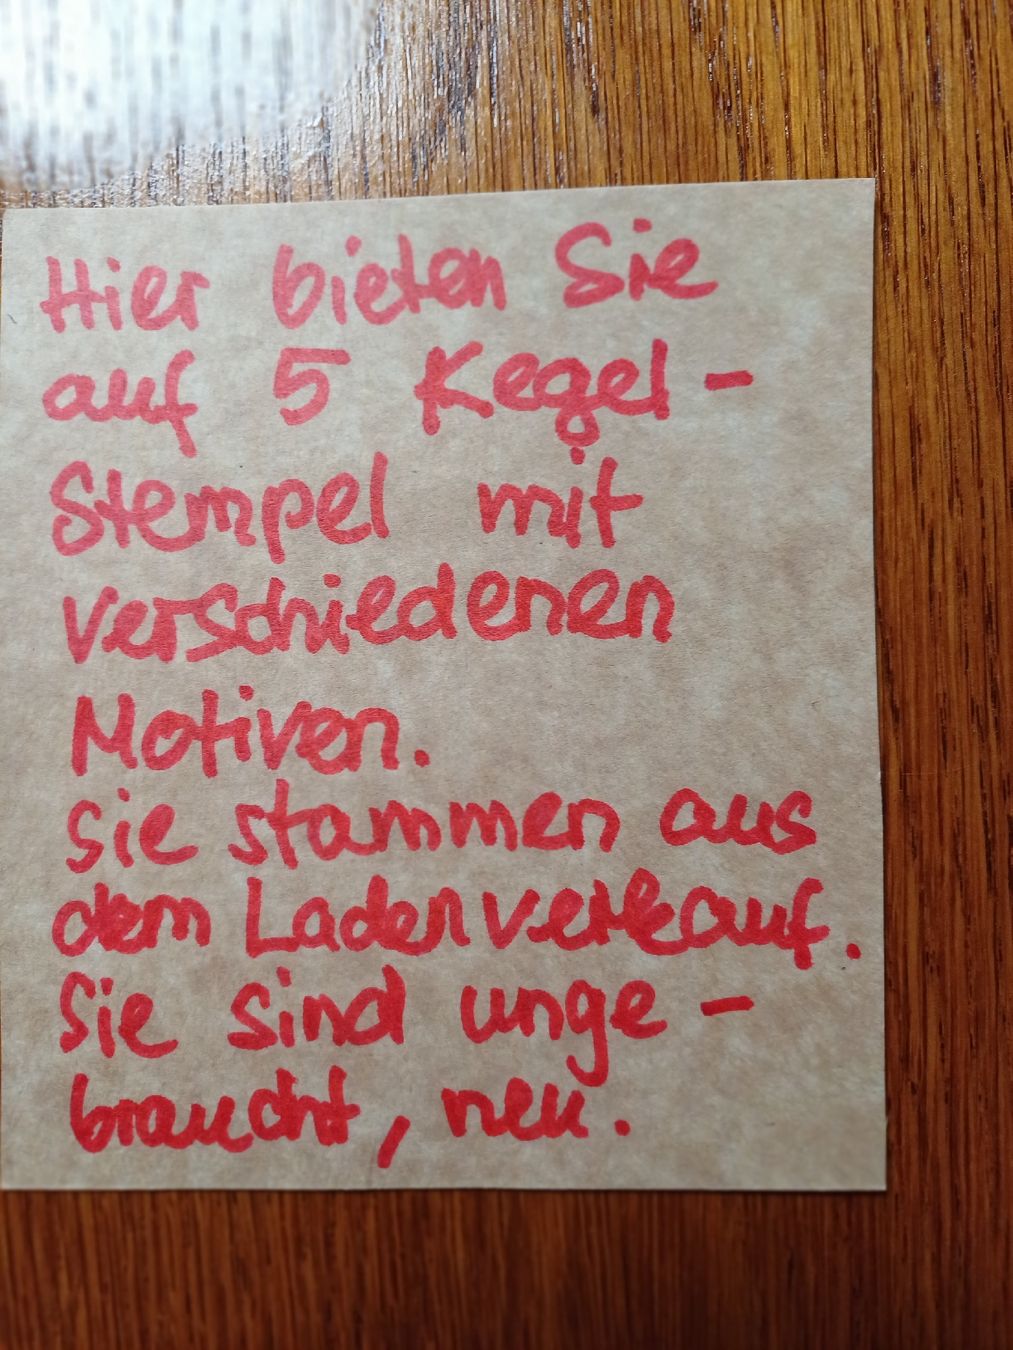 Hier bieten Sie
auf 5 Kegel -
Stempel mit
verschiedenen
Motiven.
Sie stammen aus
dem Ladenverkauf.
Sie sind unge -
braucht, neu.